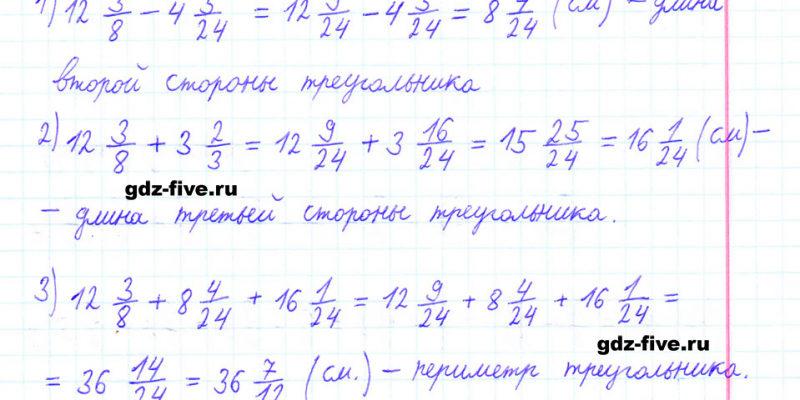 1) 12 3/8 − 4 5/24 = 12 9/24 − 4 5/24 = 8 4/24 (см) – длина
второй стороны треугольника
2) 12 3/8 + 3 2/3 = 12 9/24 + 3 16/24 = 15 25/24 = 16 1/24 (см) –
gdz-five.ru
– длина третьей стороны треугольника.
3) 12 3/8 + 8 4/24 + 16 1/24 = 12 9/24 + 8 4/24 + 16 1/24 =
gdz-five.ru
= 36 14/24 = 36 7/12 (см.) – периметр треугольника.